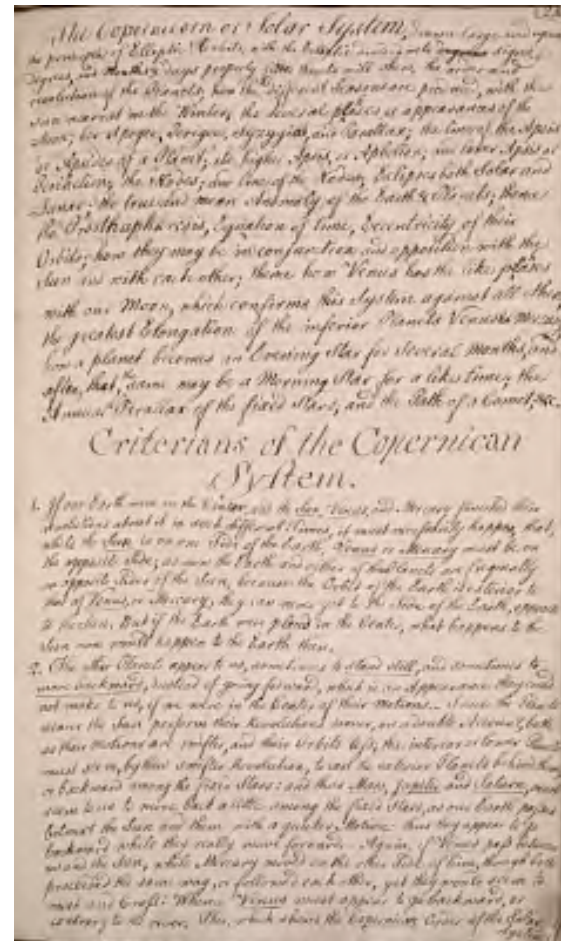 The Copernican or Solar System, drawn large and upon
the principles of Elliptic Orbits, with the Ecliptic divided into signs
degrees, and days properly thereto will shew, the order and
revolution of the Planets, how the different Seasons are produced, with the
Sun nearest in the Winter, the several phases or appearances of the
Moon; her Apogee, Perigee, Syzygias, and Parallax; the line of the Apsis
or Apsides of a Planet, its higher Apsis, or Aphelion; and lower Apsis or
Perihelion; the Nodes; and line of the Nodes, Eclipses both Solar and
Lunar; the true and mean Anomaly of the Earth & Planets; thence
the Prosthaphæresis, Equation of time, Excentricity of their
Orbits; how they may be in conjunction and opposition with the
Sun and with each other; thence how Venus has the like phases
with our Moon, which confirms this System against all other
the greatest Elongation of the inferior Planets Venus & Mercury
how a planet becomes an Evening Star for several months, and
after that, the same may be a Morning Star for a like time; the
Annual Parallax of the fixed Stars, and the Path of a Comet, &c.
Criterians of the Copernican
System.
1. If our Earth were in the Center, and the Sun, Venus, and Mercury finished their
revolutions about it in such different Times, it must necessarily happen, that,
while the Sun is on one Side of the Earth, Venus or Mercury must be on
the opposite Side; as now the Earth and either of those Planets are frequently
on opposite Sides of the Sun, because the Orbit of the Earth is exterior to
that of Venus, or Mercury, they can never get to the Side of the Earth, opposite
to the Sun. But if the Earth were placed in the Center, what happens to the
Sun now would happen to the Earth then.
2. The other Planets appear to us, sometimes to stand still, and sometimes to
move backward, instead of going forward, which is an Appearance they could
not make to us, if we were in the Center of their Motions. Since the Planets
nearer the Sun perform their Revolutions sooner, on a double Account, both
as their Motions are swifter, and their Orbits less; the interior or lower Planets
must seem, by their swifter Revolution, to cast the exterior Planets behind them
or backward among the fixed Stars: and thus Mars, Jupiter and Saturn, must
seem to us to move back a little among the fixed Stars, as our Earth passes
between the Sun and them with a quicker Motion. thus they appear to go
backward while they really move forward. Again, if Venus pass between
us and the Sun, while Mercury moved on the other Side of him, though both
proceeded the same way, or followed each other, yet they would seem to
meet and Cross: Whence Venus must appear to go backward, or
contrary to its course. This, which shews the Copernican Order of the Solar
System